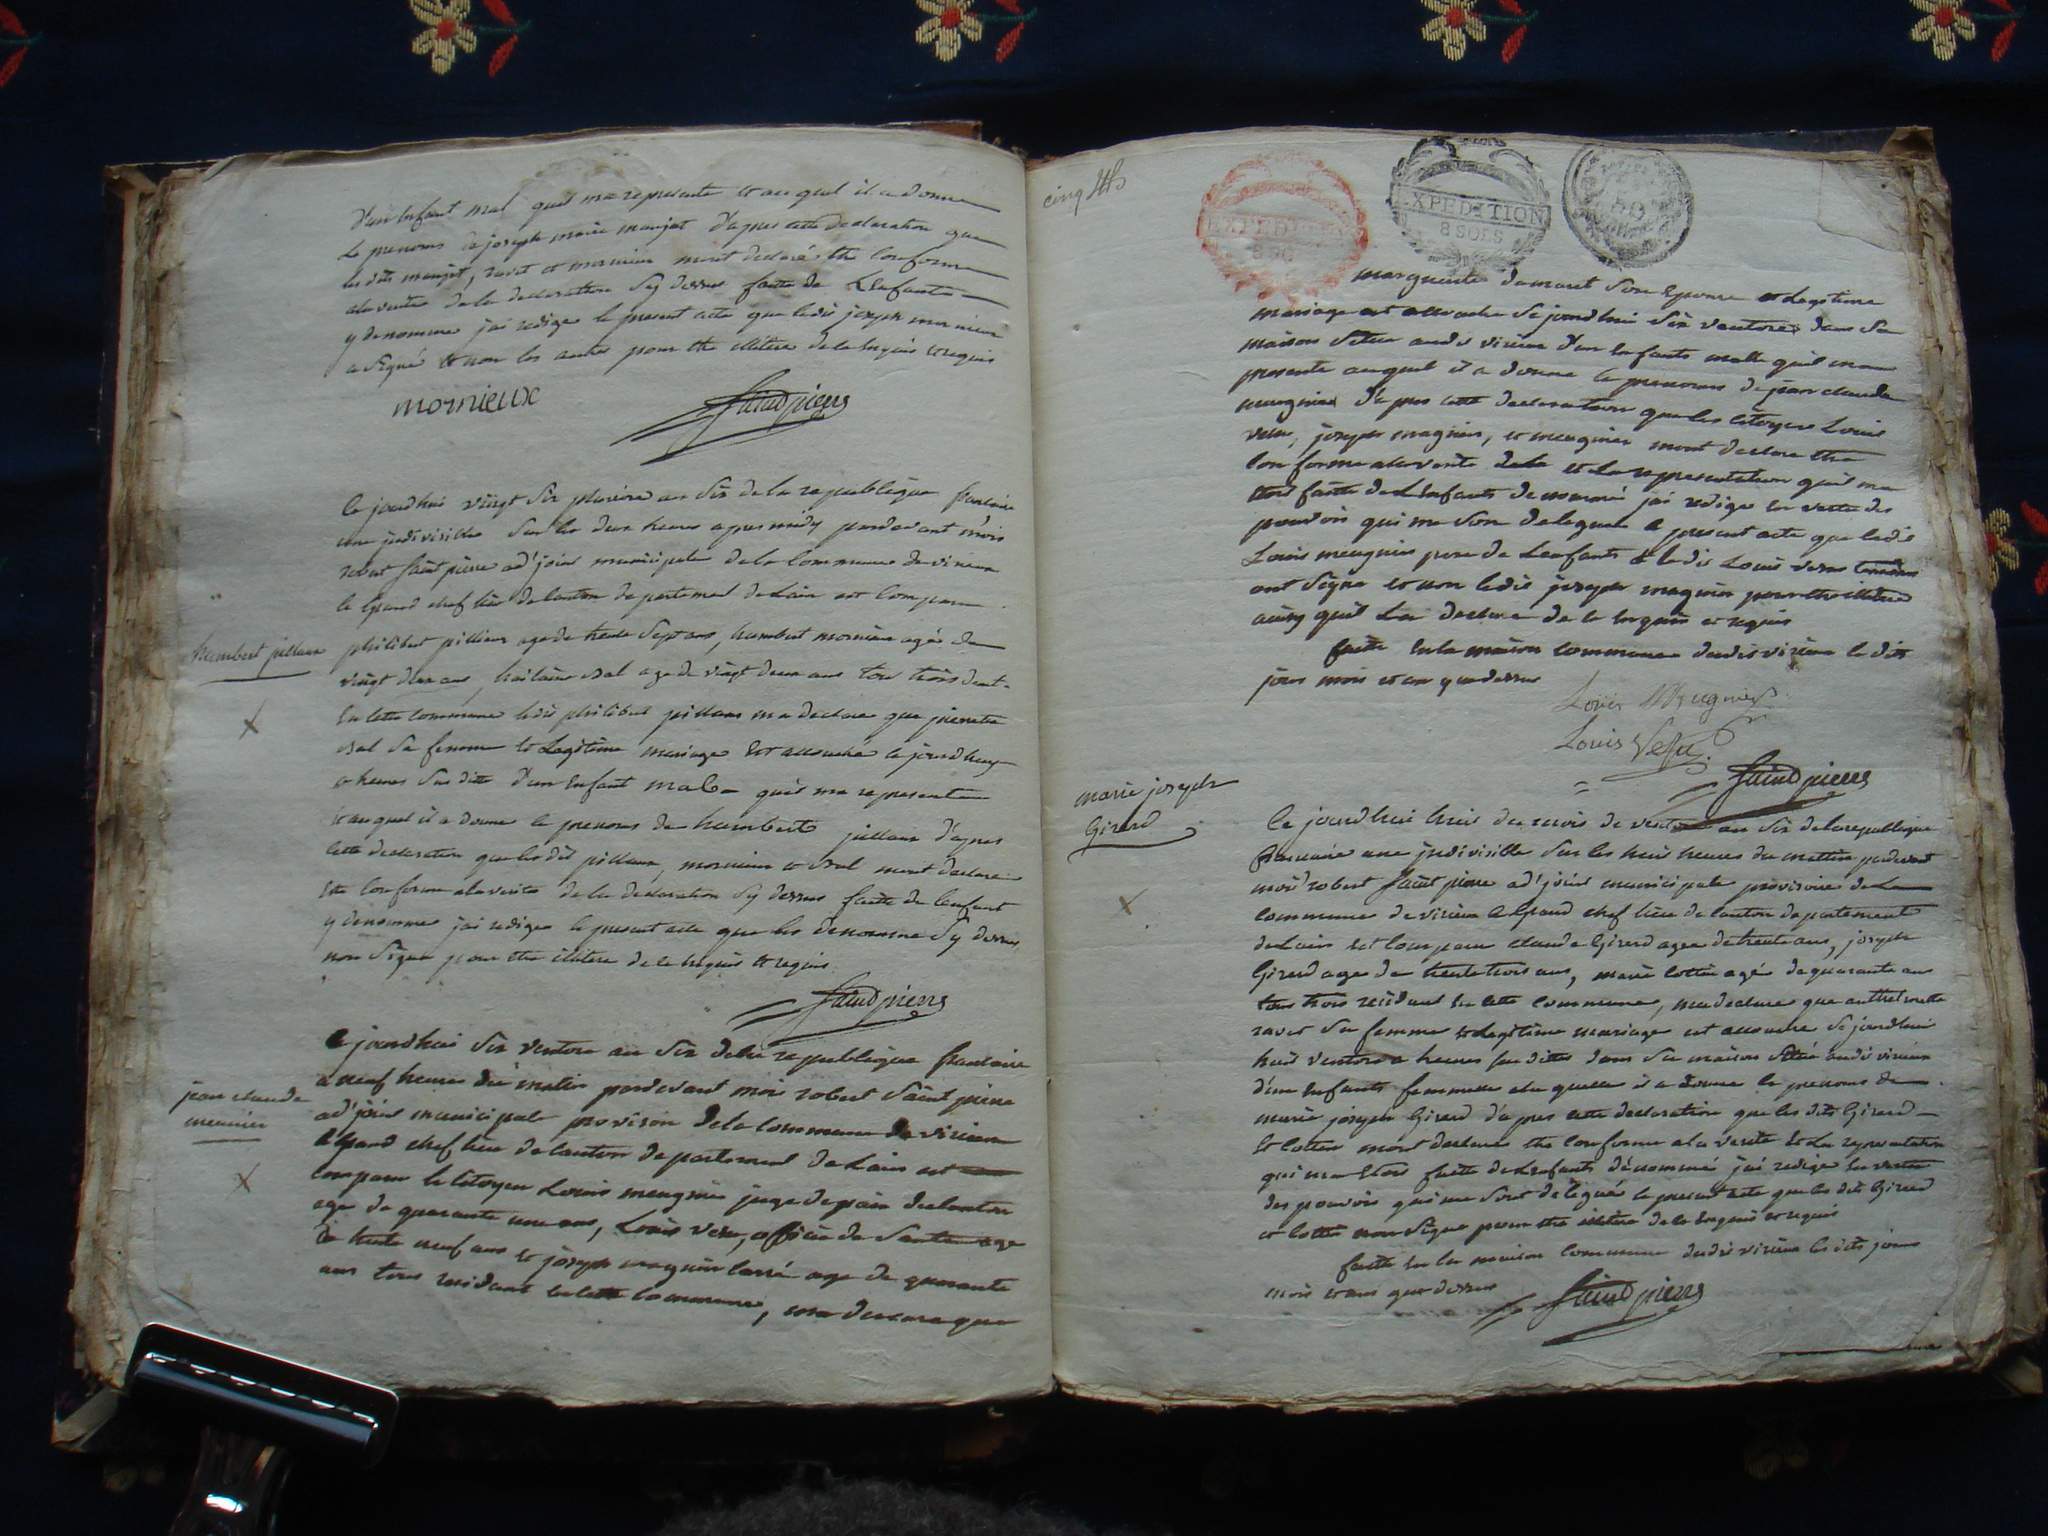 d'un enfant mal quil ma represente et au quel il a donne
le prenoms de joseph marie manjot d'apres cette declaration que
les dits manjot, ravet et mornieux mont declaré etre conforme
a la verite de la declaration sy dessus faitte de Lenfant
y denomme jai redige le present acte que ledit joseph mornieux
a signé et non les autres pour etre illitere de ce enquis et requis
mornieux
Saint pierre
Ce jourdhui vingt six pluviose an six de la republique francaise
une indivisible sur les deux heures apres midy pardevant mois
robert saint pierre ad'joint municipale de la commune de virieux
le grand chef lieu de canton departement de Lain est comparu
humbert pillaux
philibert pillaux age de trente sept ans, humbert mornieux agé de
vingt deux ans, hailaire bal age de vingt deux ans tous trois deut-
En cette commune ledit philibert pillaux ma declare que pierrette
bal sa femme et Legitime mariage Est accouche ce jourdhuy
a heures sus ditte d'un Enfant mal quil ma represente
et au quel il a donne le prenoms de humbert pillaux d'apres
cette declaration que les dit pillaux, mornieux et bal mont declare
etre conforme a la verite de la declaration sy dessus faitte de lenfant
y denomme jai redige le present acte que les denomme sy dessus
non signe pour etre illitere de ce enquis et requis
Saint pierre
Ce jourdhui six ventose an six de la republique francaise
a neuf heures du matin pardevant mois robert saint pierre
jean claude
meunier
ad'joint municipale provisoir de la commune de virieux
le grand chef lieu de canton departement de Lain est
comparu le citoyen Louis meugnier juge de paix du canton
age de quarante une ans, Louis veru, officie de sante age
de trente neuf ans et joseph magnin carré age de quarante
ans tous residant en cette commune, ma declare que
cinq
EXPEDITION
EXPEDITION
8 SOLS
50
marguerite damaret son Epouse et Legitime
mariage est accouche ce jourdhui six ventose dans sa
maison situe audit virieux d'un Enfants malle quil ma
presente au quel il a donne le prenoms de jean claude
meugnier d'apres cette declaration que les citoyens Louis
veru, joseph magnin, et meugnier mont declare etre
conforme a la verite de la et la representation quil ma
Etoit faitte de Lenfants denommé jai redige en vertu des
pouvois qui me sont delegue le present acte que ledit
Louis meugnier pere de Lenfants & ledit Louis veru
ont signe et non ledit joseph magnin pour etre illitere
ainsy quil La declare de ce enquis et requis
faitte En la maison commune dudit virieux le dit
jours mois et an que dessus
Louis Meugnier
Louis Veru
Saint pierre
marie joseph
Girard
Ce jourdhui huit du mois de ventose an six de la republique
francaise une indivisible sur les huit heures du mattin pardevant
mois robert saint pierre ad'joint municipale provisoire de La
commune de virieux le grand chef lieu de canton departement
de Lain est comparu claude Girard agee de trente ans, joseph
Girard age de trente trois ans, marie cottin agé de quarante ans
tous trois residant En cette commune, ma declare que anthelmette
ravet sa femme et Legitime mariage est accouche ce jourdhui
huit ventose a heures sus dittes dans sa maison situé audit virieux
d'une Enfants femmelle a la quelle il a donne le prenoms de
marie joseph Girard d'apres cette declaration que les dits Girard
Et cottin mont declaré etre conforme a la verite Et La representation
qui ma Etoit faitte de Lenfants dénommé jai redige En vertu
des pouvois qui me sont delegué le present acte que les dits Girard
et cottin non signe pour etre illitere de ce enquis et requis
faitte En la maison commune dudit virieux les dits jours
mois et ans que dessus
Saint pierre